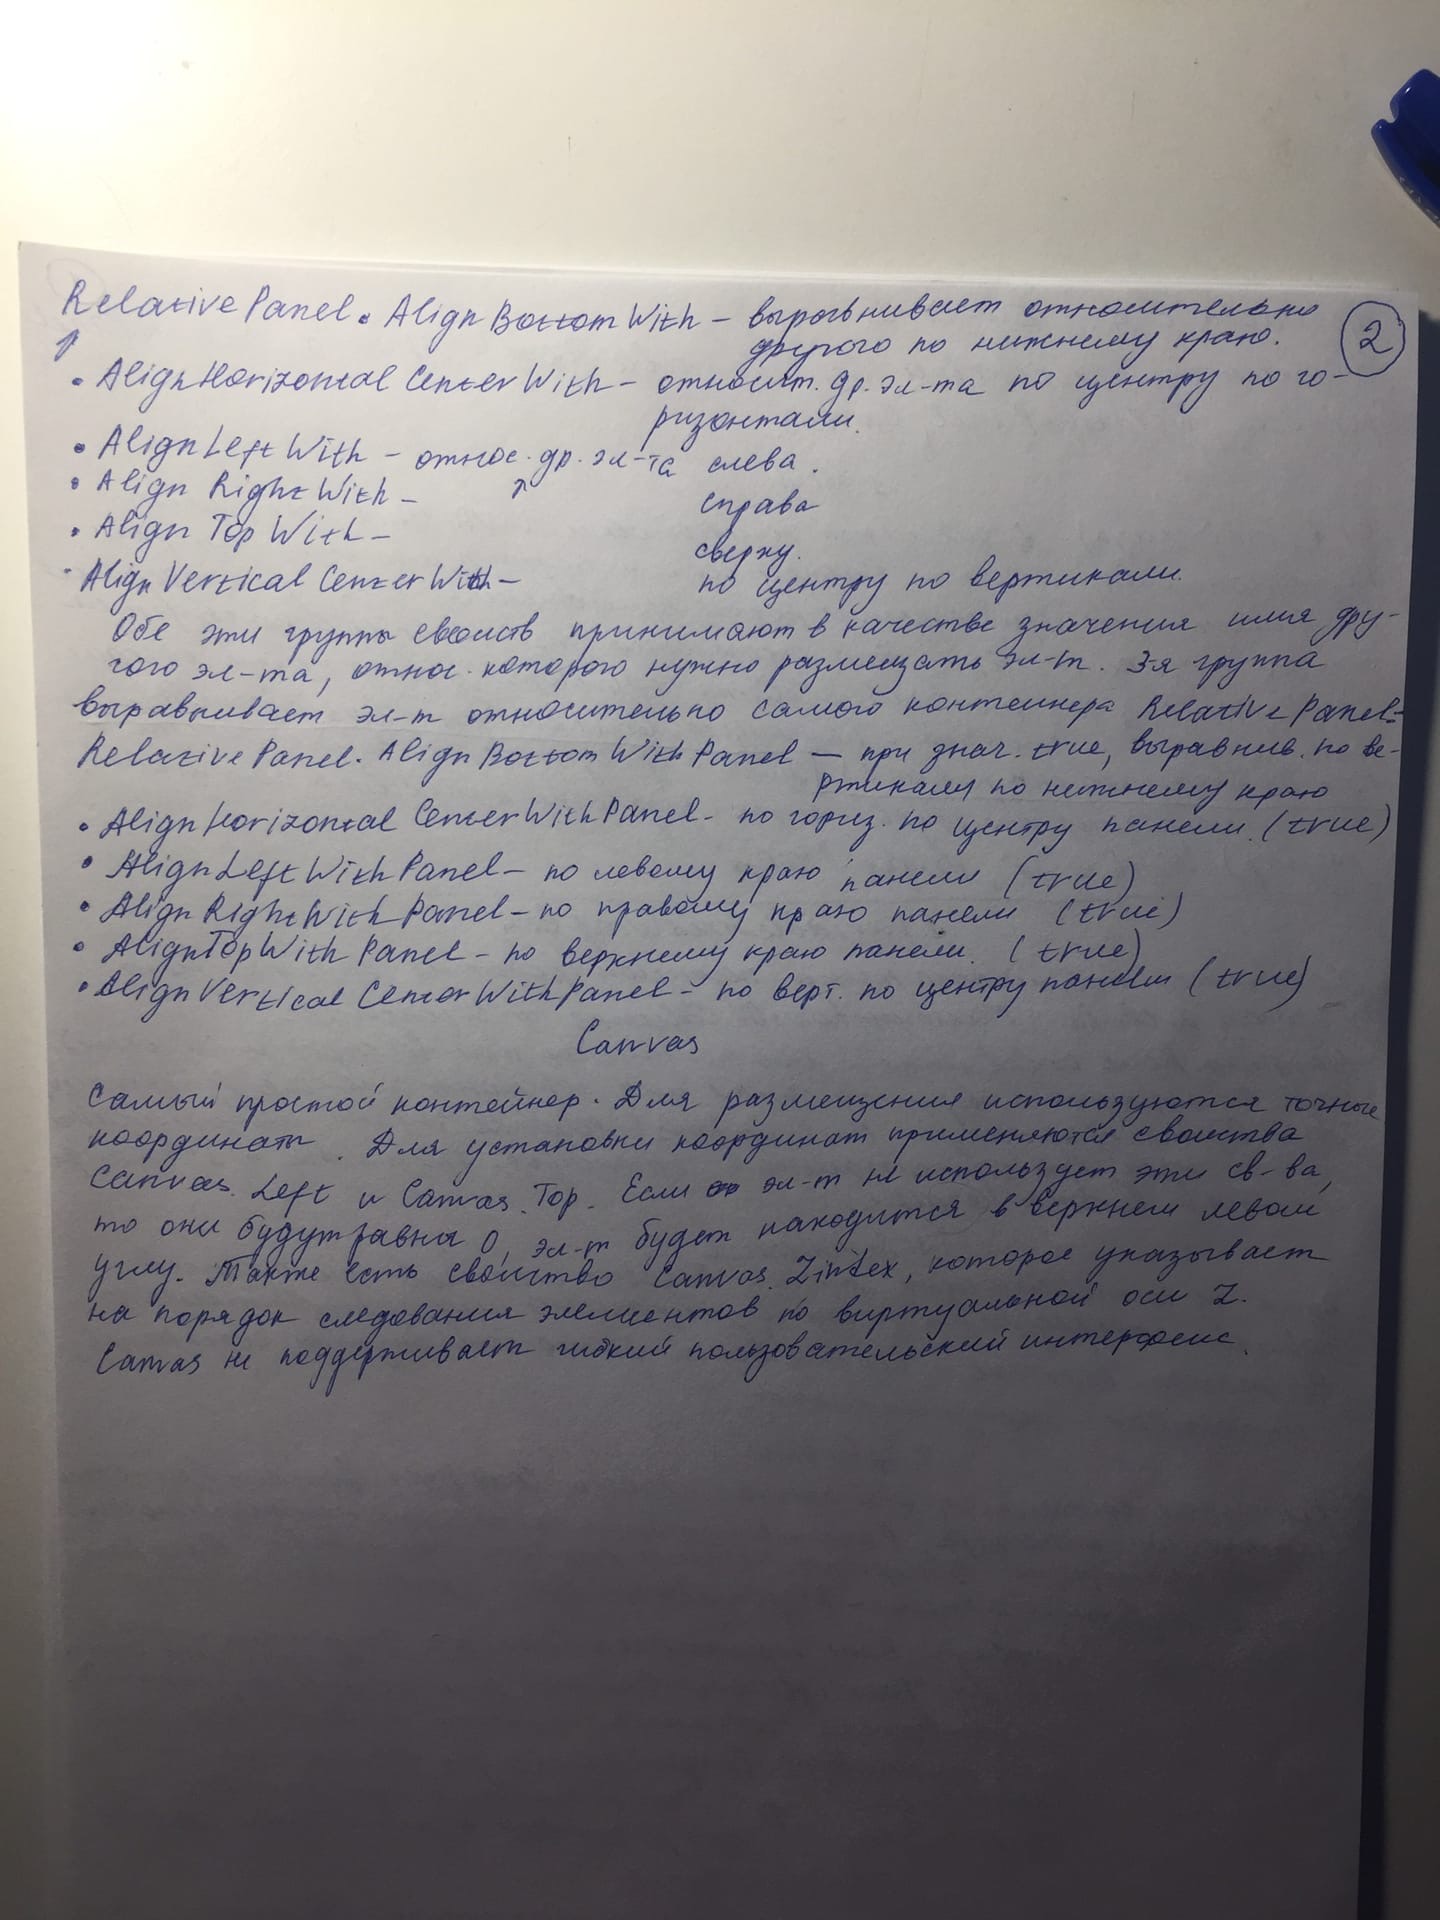 RelativePanel. AlignBottomWith – выравнивает относительно
другого по нижнему краю.
2
• AlignHorizontalCenterWith – относит. др. эл-та по центру по го-
ризонтали.
• AlignLeftWith – относ. др. эл-та слева.
• AlignRightWith – справа
• AlignTopWith – сверху.
AlignVerticalCenterWith – по центру по вертикали.
Обе эти группы свойств принимают в качестве значения имя дру-
гого эл-та, относ. которого нужно размещать эл-т. 3-я группа
выравнивает эл-т относительно самого контейнера RelativePanel:
RelativePanel. AlignBottomWithPanel — при знач. true, выравнив. по ве-
ртикали по нижнему краю
• AlignHorizontalCenterWithPanel – по гориз. по центру панели. (true)
• AlignLeftWithPanel – по левому краю панели (true)
• AlignRightWithPanel – по правому краю панели (true)
• AlignTopWithPanel – по верхнему краю панели. (true)
• AlignVerticalCenterWithPanel – по верт. по центру панели (true)
Canvas
Самый простой контейнер. Для размещения используются точные
координаты. Для установки координат применяются свойства
Canvas. Left и Canvas. Top. Если эл-т не использует эти св-ва,
то они будут равны 0, эл-т будет находится в верхнем левом
углу. Также есть свойство Canvas. Zintex, которое указывает
на порядок следования элементов по виртуальной оси Z.
Canvas не поддерживает гибкий пользовательский интерфейс.